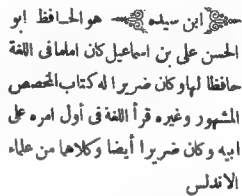 ابن سيده هو الحافظ ابو
الحسن على بن اسماعيل كان اماما فى اللغة
حافظا لها وكان ضريرا له كتاب المخصص
المشهور وغيره قرأ اللغة فى أول امره على
ابيه وكان ضريرا أيضا وكلاهما من علماء
الاندلس